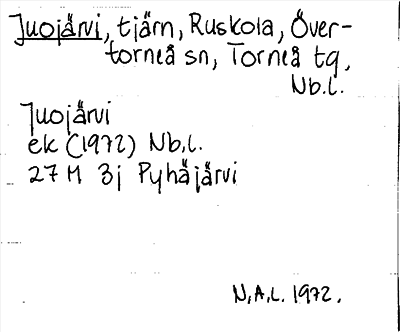 Juojärvi, tjärn, Ruskola, Över-
torneå sn, Torneå tg,
Nb.l.
Juojärvi
ek (1972) Nb.l.
27 M 3j Pyhäjärvi
N.A.L. 1972.